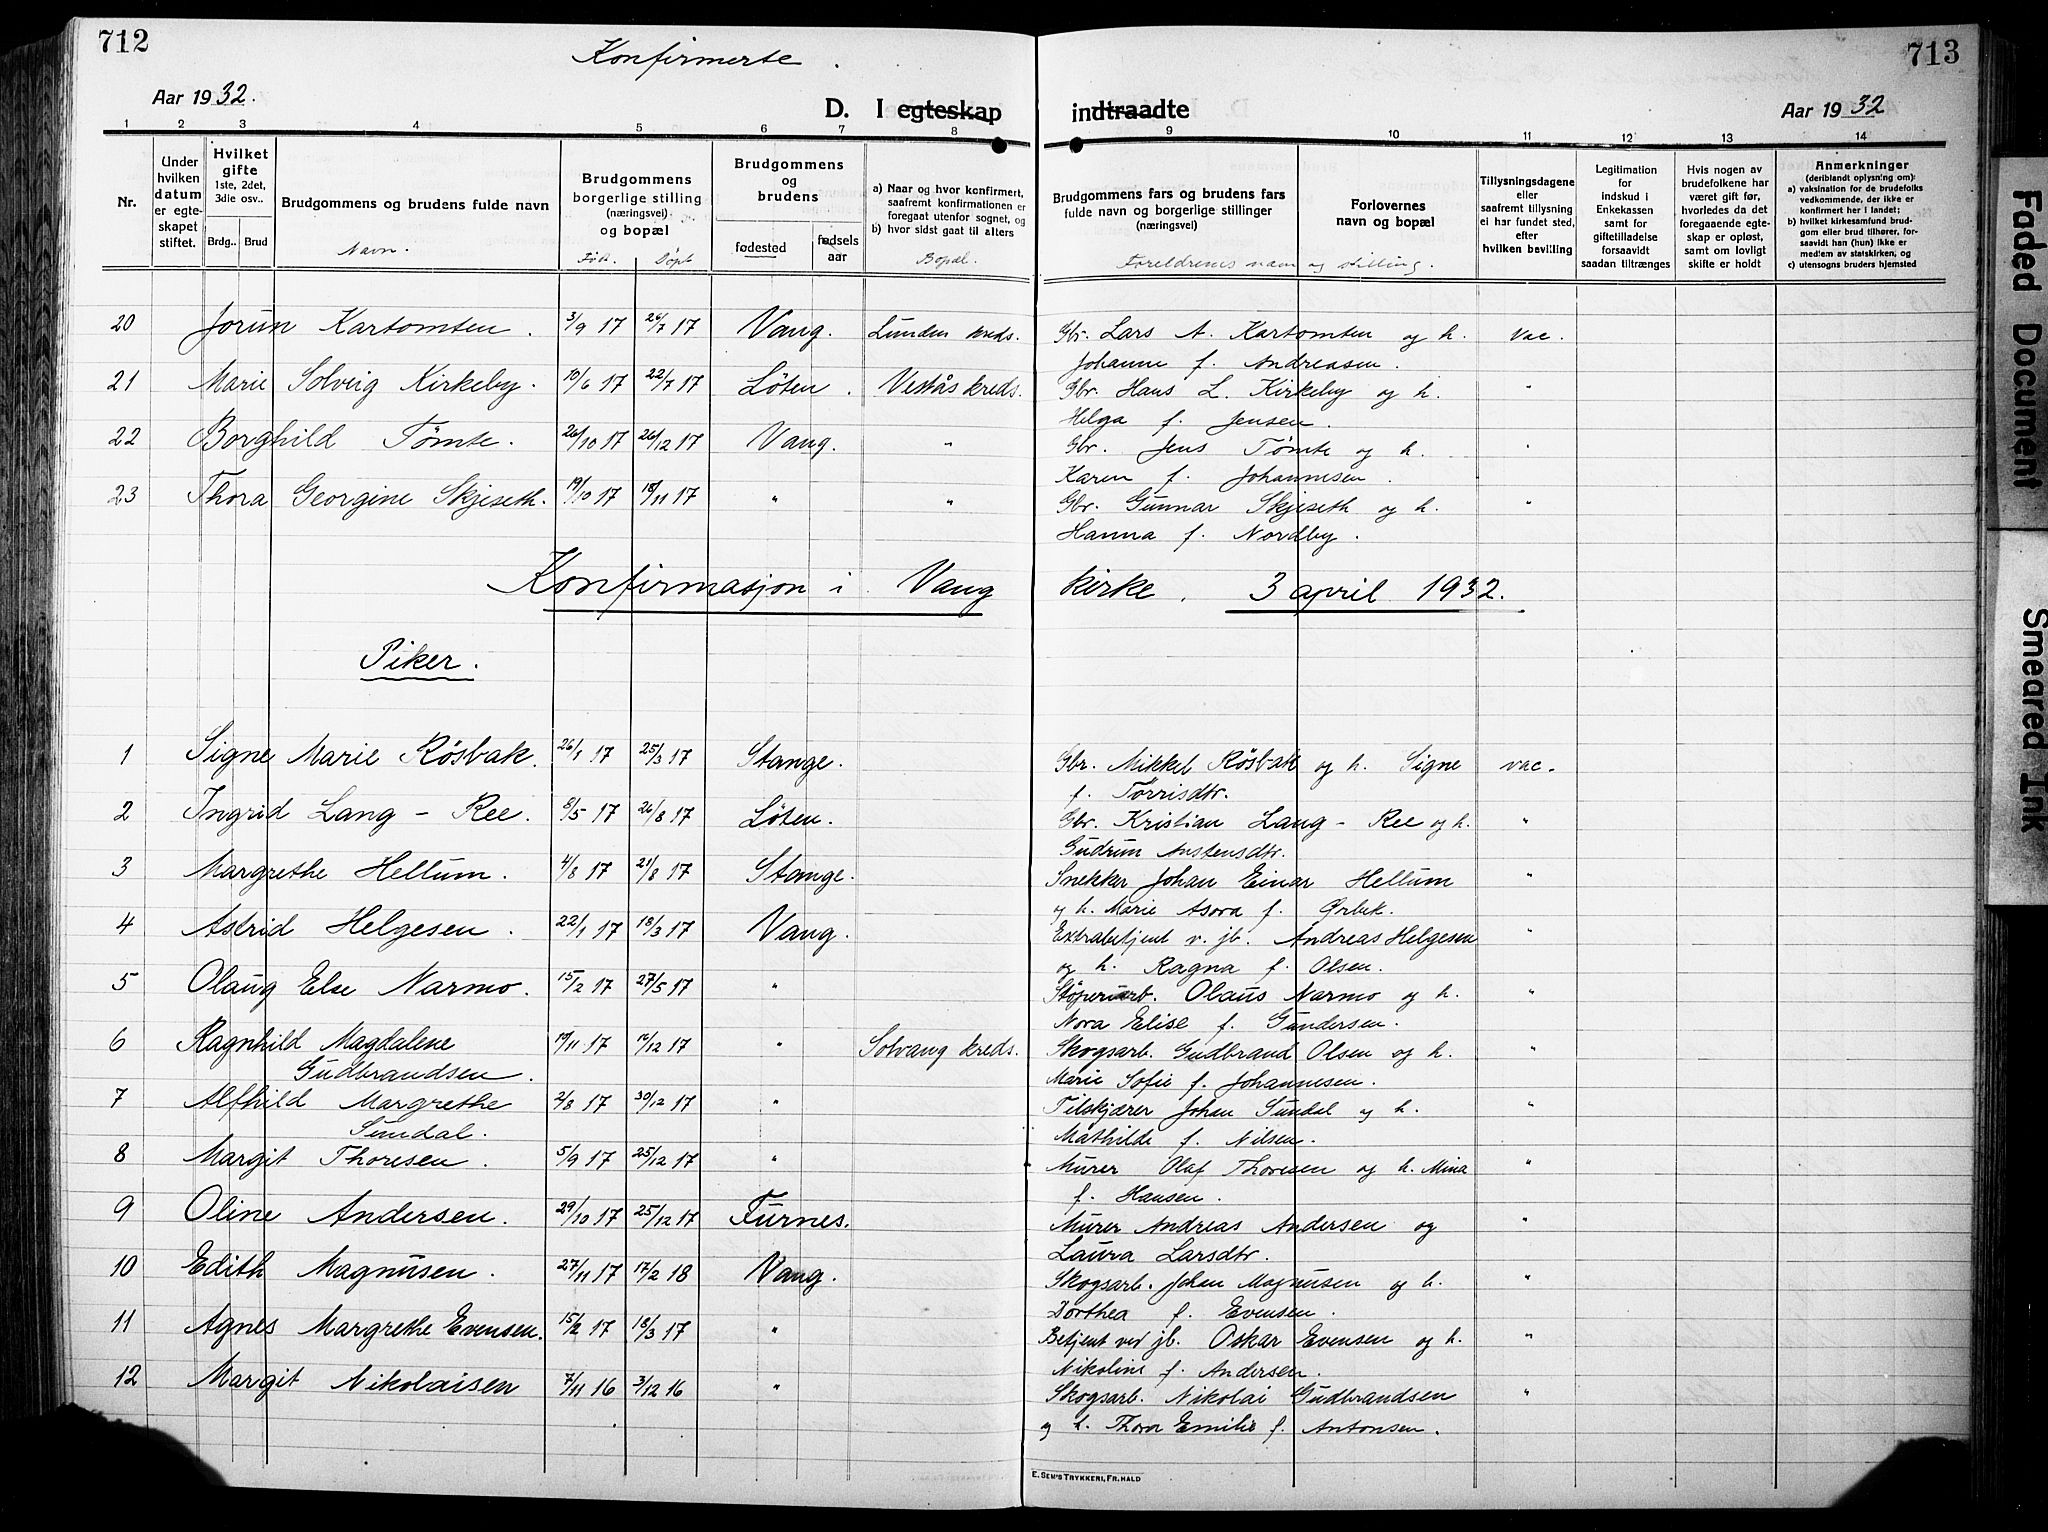 712
Konfirmerte.
713
Aar 1932.
D. I egteskap indtraadte
Aar 1932
1 2 3 4 5 6 7 8 9 10 11 12 13 14
Nr.
Under hvilken datum er egteskapet stiftet.
Hvilket gifte 1ste, 2det, 3die osv..
Brdg.. Brud
Brudgommens og brudens fulde navn
Navn.
Brudgommens borgerlige stilling (næringsvei) og bopæl
Født. Døpt
Brudgommens og brudens
fødested fødsels aar
a) Naar og hvor konfirmert, saafremt konfirmationen er foregaat utenfor sognet, og
b) hvor sidst gaat til alters
Bopæl.
Brudgommens fars og brudens fars fulde navn og borgerlige stillinger (næringsvei)
Foreldrenes navn og stilling.
Forlovernes navn og bopæl
Tillysningsdagene eller saafremt tillysning ei har fundet sted, efter hvilken bevilling
Legitimation for indskud i Enkekassen samt for giftetilladelse forsaavidt saadan tiltrænges
Hvis nogen av brudefolkene har været gift før, hvorledes da det foregaaende egteskap er opløst, samt om lovligt skifte er holdt
Anmerkninger (deriblandt oplysning om):
a) vaksination for de brudefolks vedkommende, der ikke er konfirmert her i landet;
b) hvilket kirkesamfund brudgom eller brud tilhører, forsaavidt han (hun) ikke er medlem av statskirken, og
c) utensogns bruders hjemsted
20 Jorun Kartomten. 3/9 17 26/7 17 Vang. Lunden kreds. Gbr. Lars A. Kartomten og h. Vac.
Johanne f. Andreasen.
21 Marie Solveig Kirkeby. 19/6 17 22/7 17 Löten. Vestås kreds. Gbr. Hans L. Kirkeby og h. "
Helga f. Jensen.
22 Borghild Tømte. 26/10 17 26/12 17 Vang. " Gbr. Jens Tømte og h. "
Karen f. Johannesen.
23 Thora Georgine Skjeseth. 19/10 17 18/11 17 " " Gbr. Gunnar Skjeseth og h. "
Hanna f. Nordby.
Konfirmasjon i Vang kirke. 3 april 1932.
Piker.
1 Signe Marie Rösbak. 26/1 17 25/3 17 Stange. Gbr. Mikkel Rösbak og h. Signe vac.
f. Torrisdtr.
2 Ingrid Lang - Ree. 8/5 17 26/8 17 Löten. Gbr. Kristian Lang - Ree og h. "
Gudrun Austensdtr.
3 Margrethe Hellum. 4/8 17 21/8 17 Stange. Snekker Johan Einar Hellum "
og h. Marie Asora f. Ørbek.
4 Astrid Helgesen. 22/1 17 18/3 17 Vang. Extrabetjent v. jb. Andreas Helgesen "
og h. Ragna f. Olsen.
5 Olaug Else Narmo. 15/2 17 27/5 17 " Støperiarb. Olaus Narmo og h. "
Nora Elise f. Gundersen.
6 Ragnhild Magdalene 19/11 17 16/12 17 " Solvang kreds. Skogsarb. Gudbrand Olsen og h. "
Gudbrandsen. Marie Sofie f. Johannesen.
7 Alfhild Margrethe 2/8 17 30/12 17 " Tilskjærer Johan Sundal og h. "
Sundal. Mathilde f. Nilsen.
8 Margit Thoresen. 5/9 17 25/12 17 " Murer Olaf Thoresen og h. Mina "
f. Hansen.
9 Oline Andersen. 29/10 17 25/12 17 Furnes. Murer Andreas Andersen og "
Laura Larsdtr.
10 Edith Magnusen. 27/11 17 17/2 18 Vang. Skogsarb. Johan Magnusen og h. "
Dorthea f. Evensen.
11 Agnes Margrethe Evensen. 15/2 17 18/3 17 " Betjent ved jb. Oskar Evensen og h. "
Nikoline f. Andersen.
12 Margit Nikolaisen 7/11 16 3/12 16 " Skogsarb. Nikolai Gudbrandsen "
og h. Thora Emilie f. Antonsen.
E. SEM'S TRYKKERI, FR.HALD
Faded Document
Smeared Ink